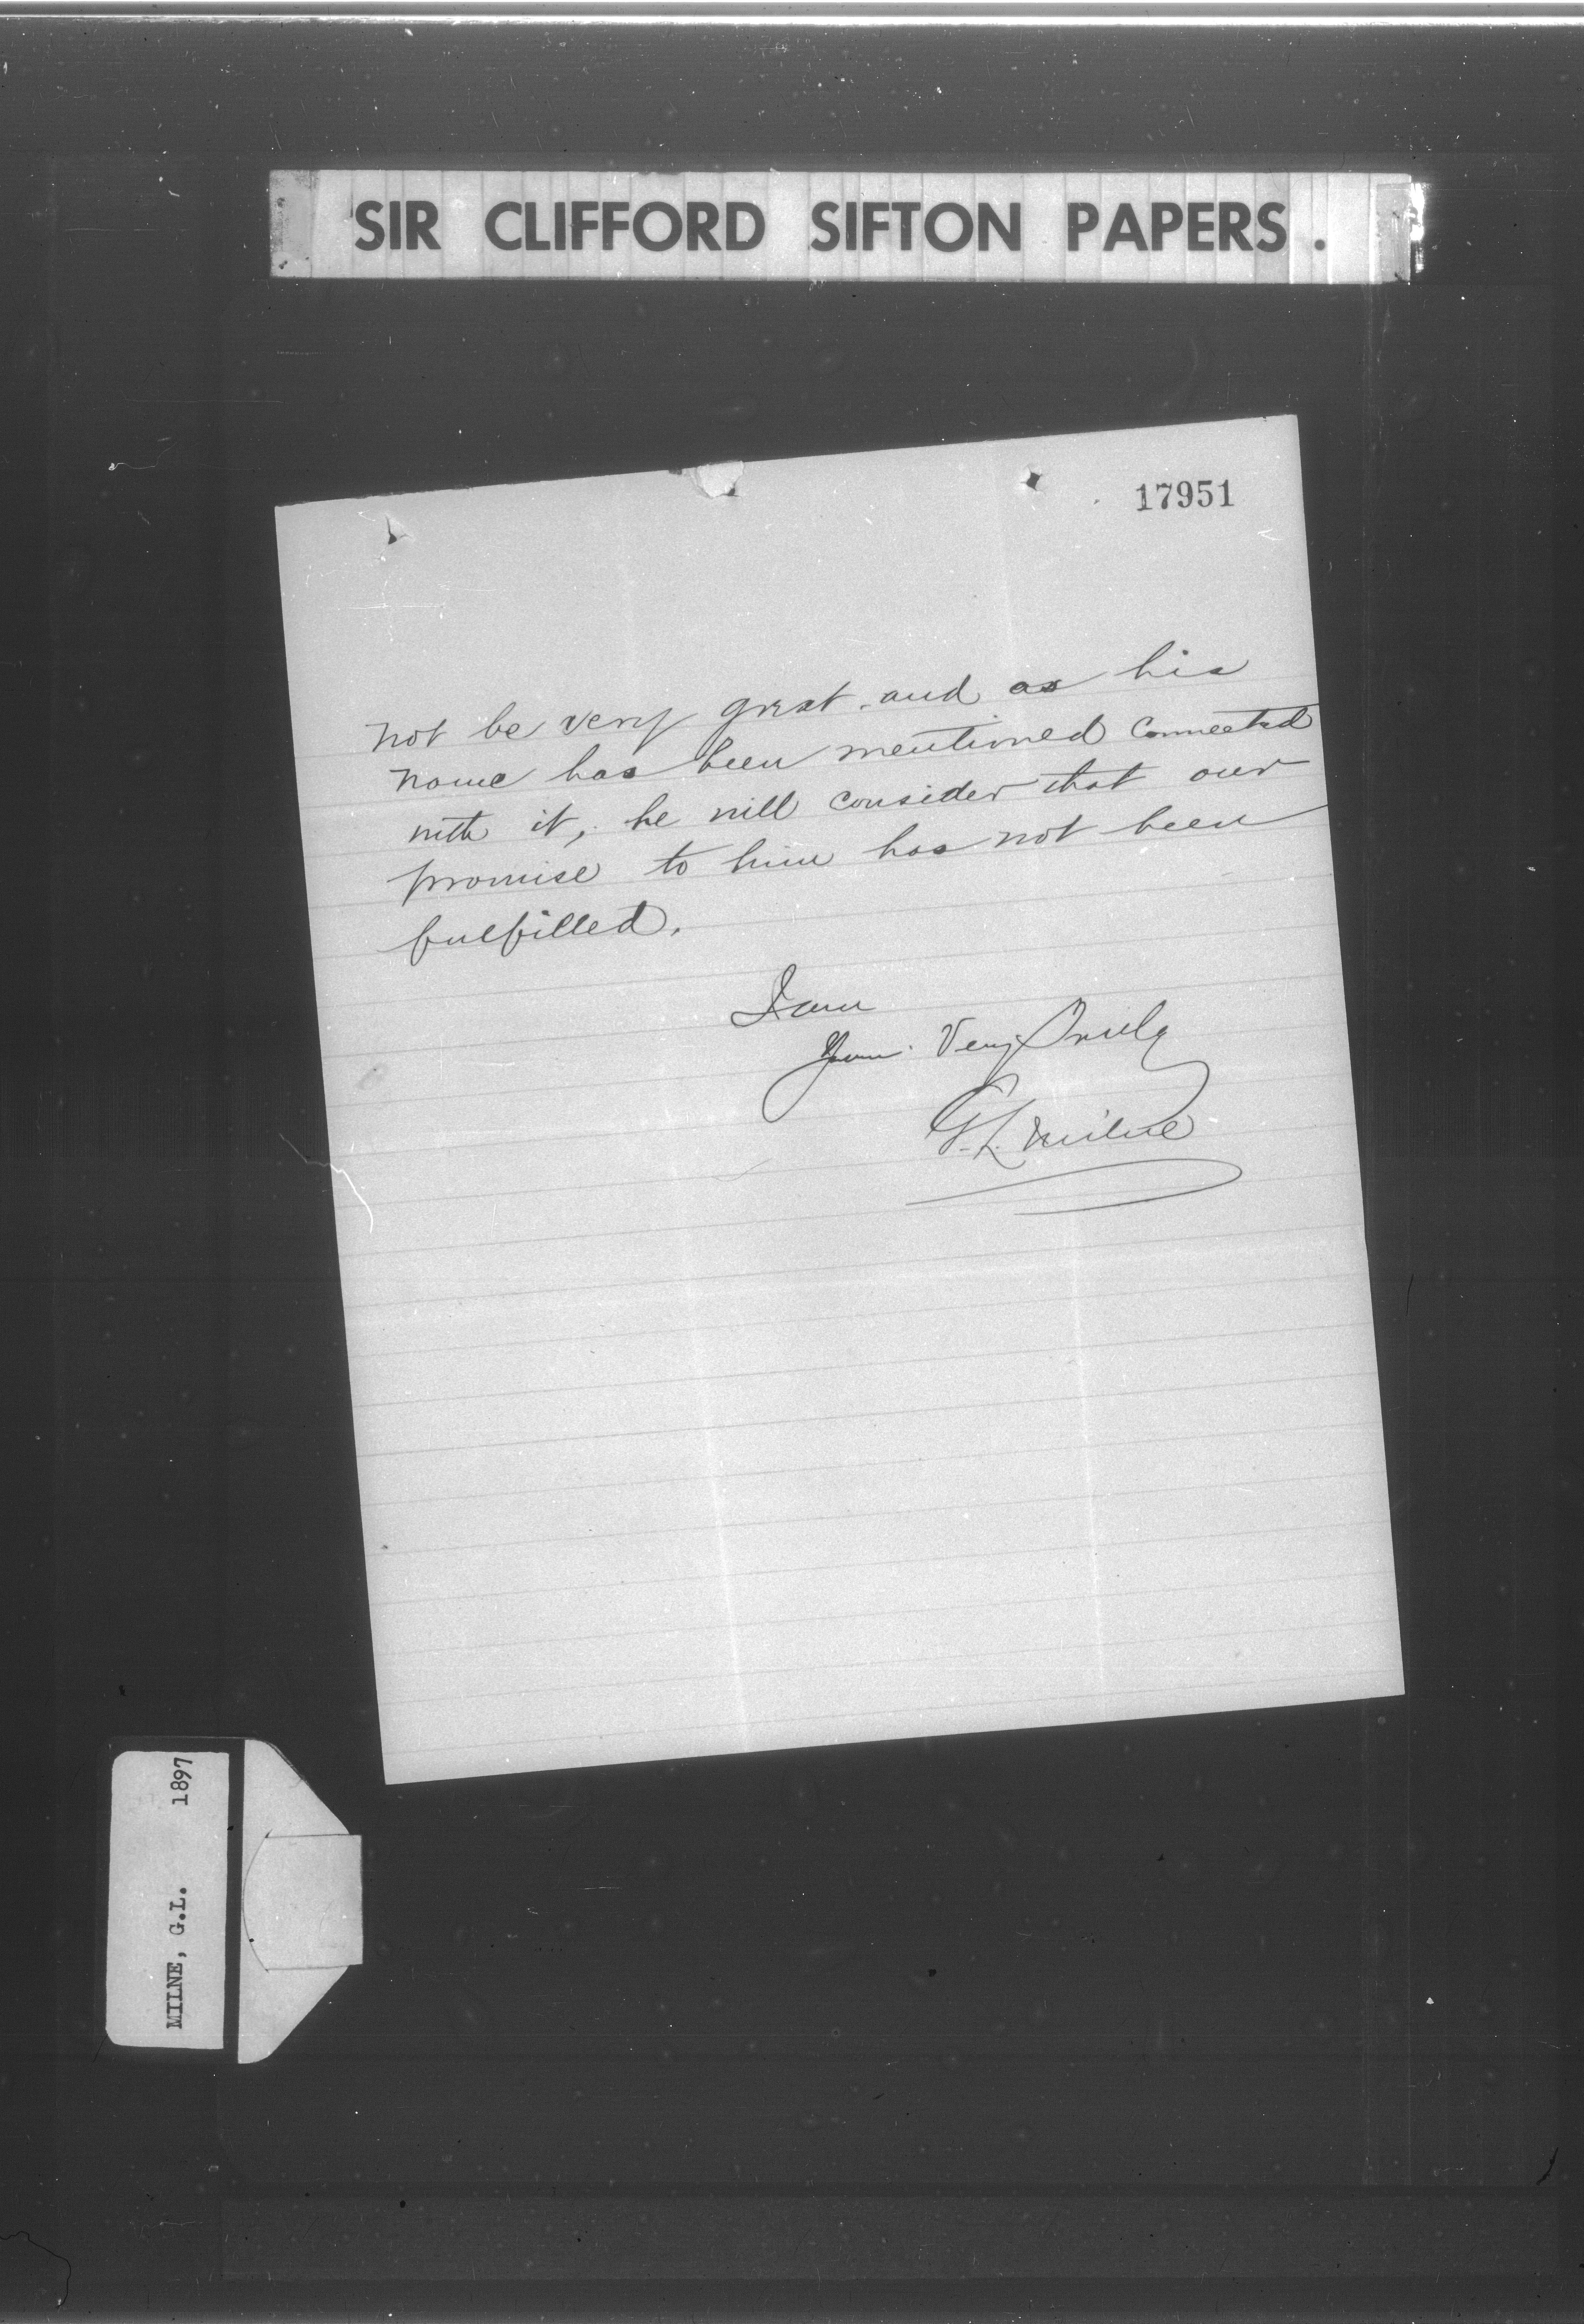 SIR CLIFFORD SIFTON PAPERS.
17951
not be very great. and as his
name has been mentioned connected
with it, he will consider that our
promise to him has not been
fulfilled.
I am
Yours Very Truly
G.L. Milne
MILNE, G.L. 1897